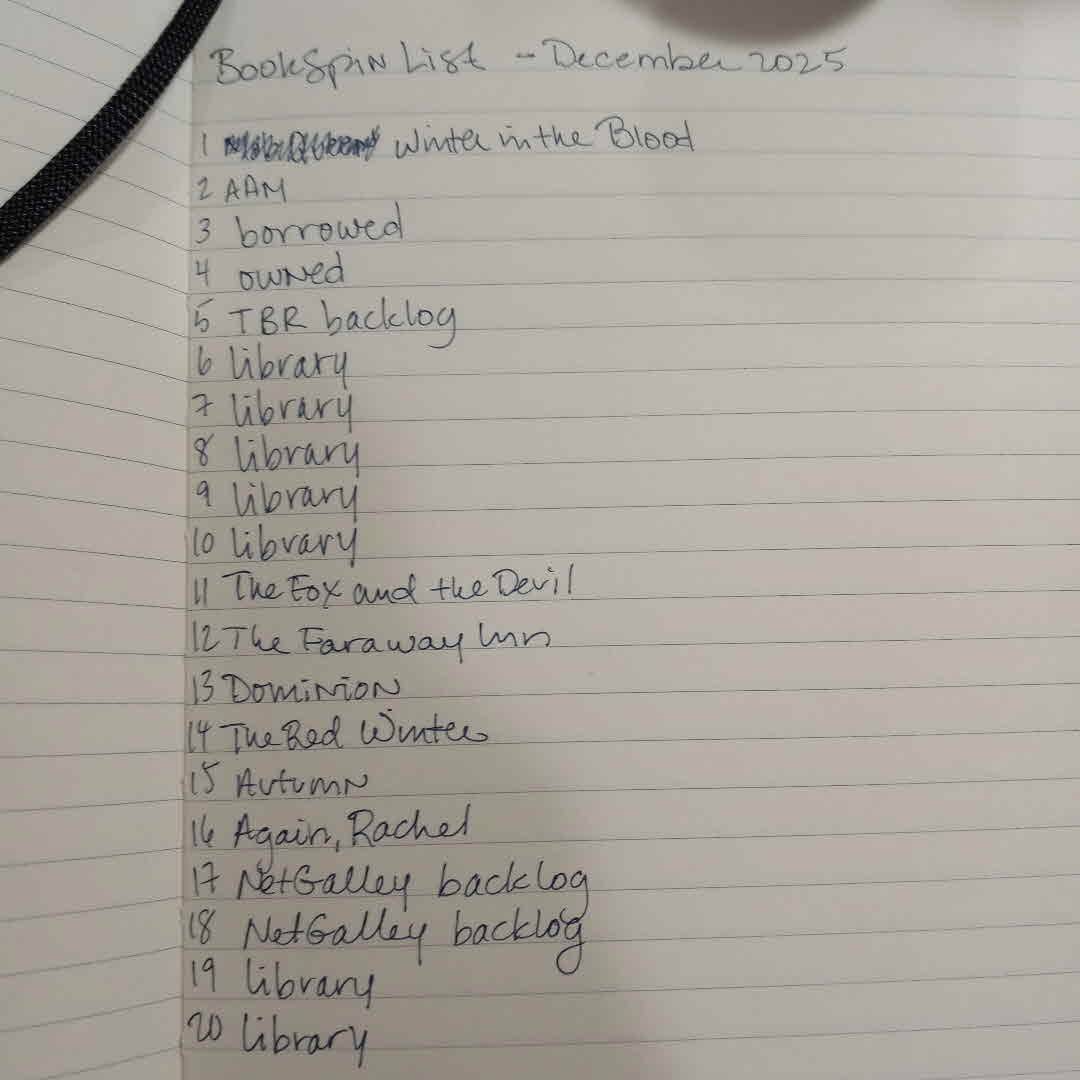 BookSpin List - December 2025
1 Winter in the Blood
2 AAM
3 borrowed
4 owned
5 TBR backlog
6 library
7 library
8 library
9 library
10 library
11 The Fox and the Devil
12 The Faraway Inn
13 Dominion
14 The Red Winter
15 Autumn
16 Again, Rachel
17 NetGalley backlog
18 NetGalley backlog
19 library
20 library